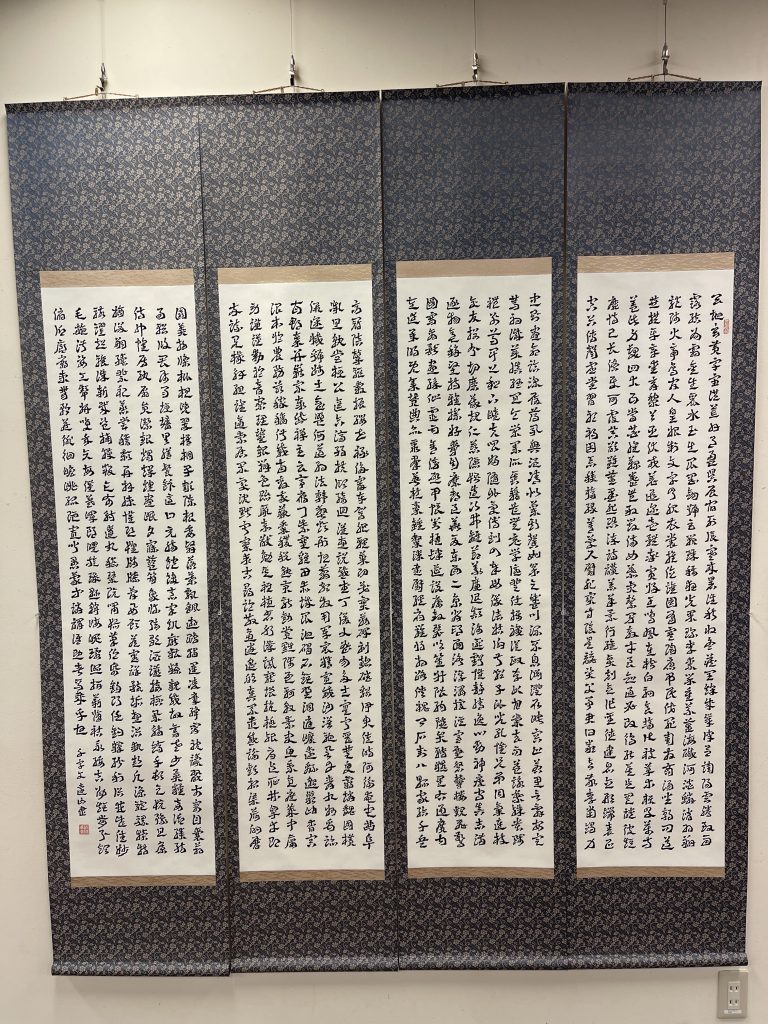 天地玄黄宇宙洪荒日月盈昃辰宿列張寒来暑往秋收冬蔵閏餘成歳律呂調陽雲騰致雨
露結為霜金生麗水玉出崑岡劍號巨闕珠稱夜光果珍李柰菜重芥薑海鹹河淡鱗潛羽翔
龍師火帝鳥官人皇始制文字乃服衣裳推位讓國有虞陶唐弔民伐罪周發殷湯坐朝問道
垂拱平章愛育黎首臣伏戎羌遐邇壹體率賓歸王鳴鳳在樹白駒食場化被草木賴及萬方
蓋此身髪四大五常恭惟鞠養豈敢毀傷女慕貞潔男效才良知過必改得能莫忘罔談彼短
靡恃己長信使可覆器欲難量墨悲絲染詩讃羔羊景行維賢剋念作聖德建名立形端表正
空谷傳聲虛堂習聽禍因惡積福緣善慶尺璧非寶寸陰是競資父事君曰嚴與敬孝當竭力
忠則盡命臨深履薄夙興温凊似蘭斯馨如松之盛川流不息淵澄取映容止若思言辭安定
篤初誠美慎終宜令榮業所基籍甚無竟學優登仕攝職從政存以甘棠去而益詠樂殊貴賤
禮別尊卑上和下睦夫唱婦隨外受傅訓入奉母儀諸姑伯叔猶子比兒孔懷兄弟同氣連枝
交友投分切磨箴規仁慈隱惻造次弗離節義廉退顛沛匪虧性靜情逸心動神疲守真志滿
逐物意移堅持雅操好爵自縻都邑華夏東西二京背邙面洛浮渭據涇宮殿盤鬱樓觀飛驚
圖寫禽獸畫彩仙靈丙舍傍啓甲帳對楹肆筵設席鼓瑟吹笙升階納陛弁轉疑星右通廣内
左達承明既集墳典亦聚群英杜稾鍾隸漆書壁經府羅將相路俠槐卿戶封八縣家給千兵
高冠陪輦驅轂振纓世祿侈富車駕肥輕策功茂實勒碑刻銘磻溪伊尹佐時阿衡奄宅曲阜
微旦孰營桓公匡合濟弱扶傾綺迴漢惠說感武丁俊乂密勿多士寔寧晉楚更霸趙魏困橫
假途滅虢踐土會盟何遵約法韓弊煩刑起翦頗牧用軍最精宣威沙漠馳譽丹青九州禹跡
百郡秦并嶽宗恆岱禪主云亭雁門紫塞雞田赤城昆池碣石鉅野洞庭曠遠緜邈巖岫杳冥
治本於農務茲稼穡俶載南畝我藝黍稷稅熟貢新勸賞黜陟孟軻敦素史魚秉直庶幾中庸
勞謙謹敕聆音察理鑑貌辨色貽厥嘉猷勉其祗植省躬譏誡寵增抗極殆辱近恥林皋幸即
兩疏見機解組誰逼索居閑處沈默寂寥求古尋論散慮逍遙欣奏累遣慼謝歡招渠荷的歷
園莽抽條枇杷晚翠梧桐早凋陳根委翳落葉飄颻遊鵾獨運凌摩絳霄耽讀翫市寓目囊箱
易輶攸畏屬耳垣牆具膳餐飯適口充腸飽飫烹宰飢厭糟糠親戚故舊老少異糧妾御績紡
侍巾帷房紈扇圓潔銀燭煒煌晝眠夕寐藍筍象牀絃歌酒讌接杯舉觴矯手頓足悅豫且康
嫡後嗣續祭祀蒸嘗稽顙再拜悚懼恐惶牋牒簡要顧答審詳骸垢想浴執熱願涼驢騾犢特
駭躍超驤誅斬賊盜捕獲叛亡布射遼丸嵇琴阮嘯恬筆倫紙鈞巧任釣釋紛利俗並皆佳妙
毛施淑姿工顰妍笑年矢每催曦暉朗曜璇璣懸斡晦魄環照指薪修祜永綏吉劭矩步引領
俯仰廊廟束帶矜莊徘徊瞻眺孤陋寡聞愚蒙等誚謂語助者焉哉乎也 千字文